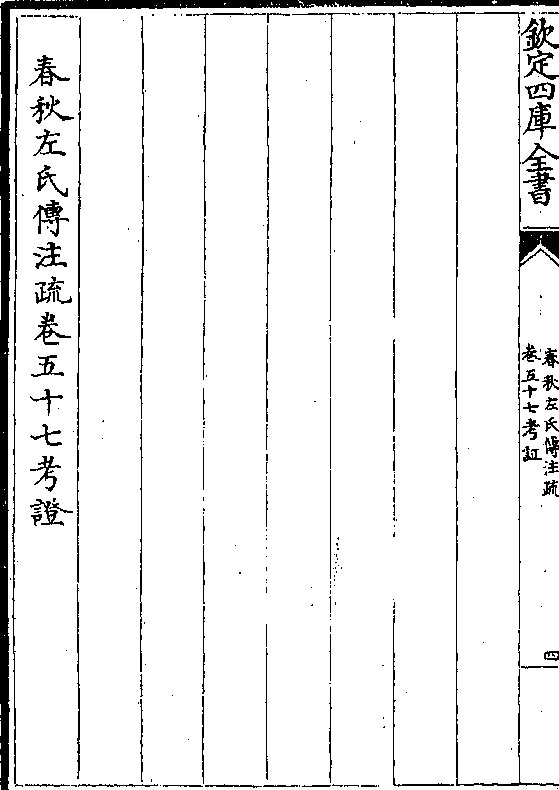 欽定四庫全書
春秋左氏傳注疏
卷五十七考証
四
春秋左氏傳注疏卷五十七考證